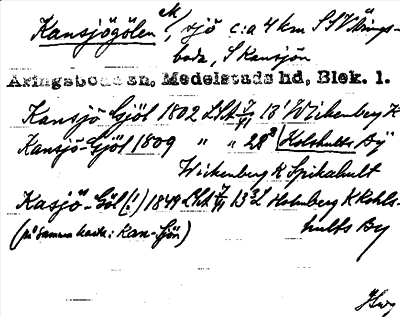 Kansjögölen M, sjö c:a 4 km SSV Årings-
boda, S Kansjön
Aringsboda sn, Medelstads hd, Blek. l.
Kansjö Gjöl 1802 LSA 13¹ Wickenberg K
Kansjö-Gjöl 1809 " " 28³ (Kolshults By
Wickenberg K Spikahult
Kasjö-Göl (!) 1849 LSA 13 Holmberg K Kohls-
(på samma karta: Kan-Sjön) hults By